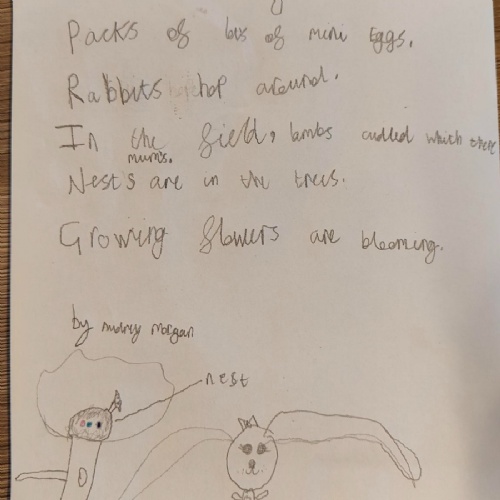 Packs of lots of mini Eggs.
Rabbits hop around.
In the field, lambs cudled which there
mums.
Nests are in the trees.
Growing flowers are blooming.
by Audrey Morgan
nest